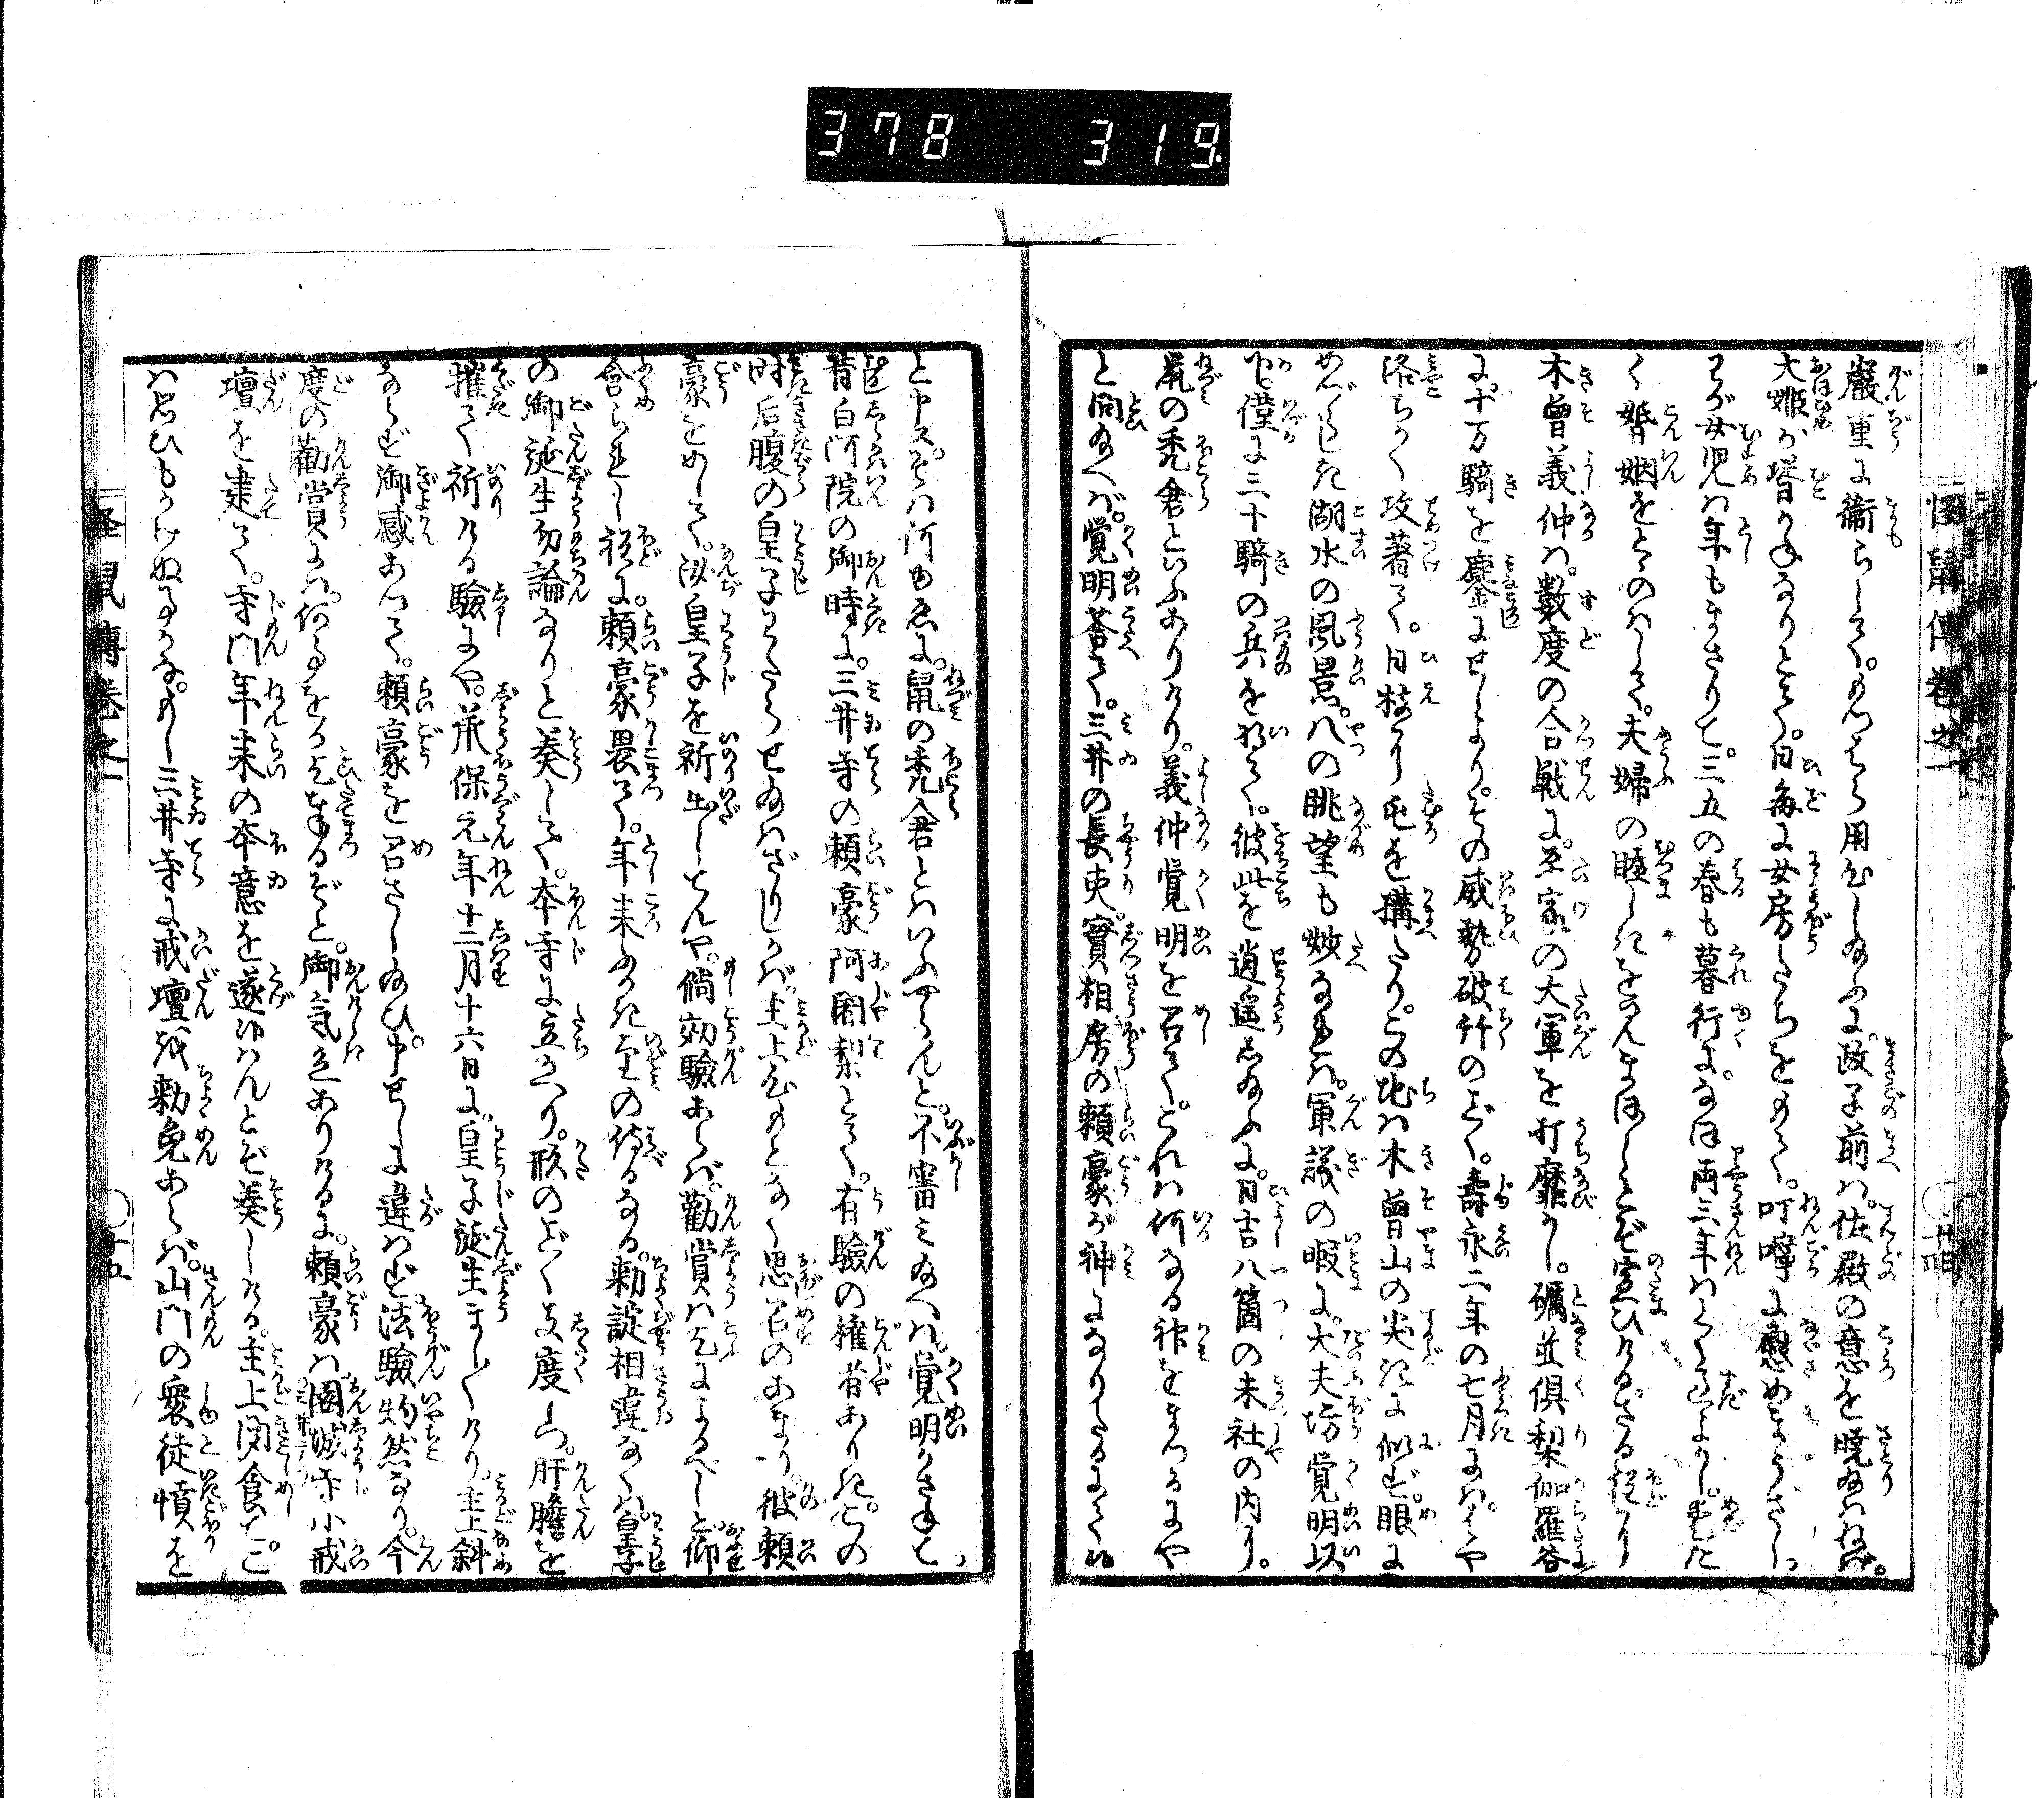 378 319
怪鼠傳巻之一 ○十四
嚴重に衞らして。めしつはら用心し給ふに。政子前は。佐殿の意を曉給はねば。
大姫が壻がねなりとて。日毎に女房たちをもて。叮嚀に慰めまゐらさし。
わが女児は年もまさりて。三五の春も暮行に。なほ両三年はくらしよかし。とまれ
く婚姻をとゝのはして。夫婦の睦しきをみんまほしとぞ宣ひけるさる程に
木曾義仲は。數度の合戦に。平家の大軍を打靡かし。礪並倶梨伽羅谷
に。十万騎を鏖にせしより。その威勢破竹のごとく。壽永二年の七月には。はや
洛ちかく攻著て。日枝より屯を構たり。この地は木曾山の尖きに似ず。眼に
めづらしき湖水の風景。八の眺望も妙なれば。軍議の暇に。大夫坊覚明以
下僅に三十騎の兵を將て。彼此を逍遥し給ふに。日吉八箇の末社の内に。
鼠の禿倉といふありけり。義仲覚明を召て。これは何なる神をまつるにや
と問給へば。覚明荅て。三井の長吏。實相房の頼豪が神になりたるにて候
と申す。そは何ゆゑに。鼠の禿倉とはいふやらんと。不審み給へば。覚明かさねて。
昔白河院の御時に。三井寺の頼豪阿闍梨とて。有驗の權者ありき。この
時后腹の皇子わたらせ給はざりしかば。主上心もとなく思召のあまり。彼頼
豪をめして。汝皇子を祈出してんや。倘効驗あらば。勸賞は乞によるべしと。仰
含られし程に。頼豪畏て。年来ふかき望の侍るなる。勅諚相違なくは。皇子
の御誕生勿論なりと奏して。本寺に立かへり。形のごとく支度し。肝膽を
摧て祈りける驗にや。承保元年十二月十六日に。皇子誕生まし〳〵けり。主上斜
ならず御感あつて。頼豪を召さし給ひ。申せしに違はず。法驗灼然なり。今
度の勸賞には。何事をか乞奉るぞと。御氣色ありけるに。頼豪は園城寺小戒
壇を建て。寺門年来の本意を遂候はんとぞ奏しける。主上聞食て。こ
は思ひもかけぬ事かな。もし三井寺に戒壇を勅免あらば。山門の衆徒憤を
怪鼠傳巻之一 ○十五